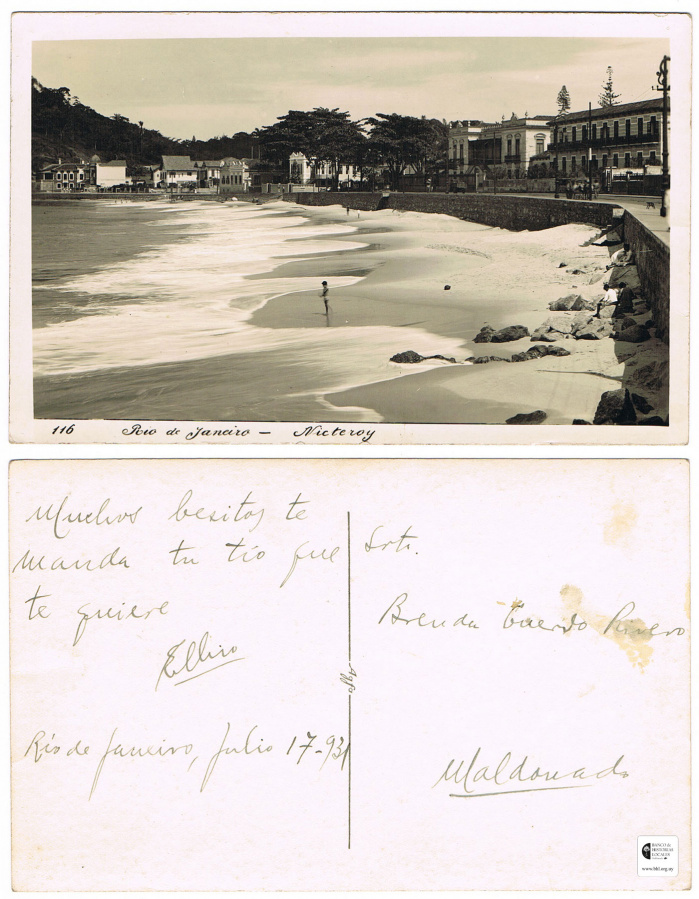 116 Rio de Janeiro — Nicteroy
Muchos besitos te
manda tu tío que
te quiere
Río de Janeiro, Julio 17-931
Agfa
Srta.
Brenda Cuervo Rivero
Maldonado
BANCO de
HISTORIAS
LOCALES
www.bhl.org.uy